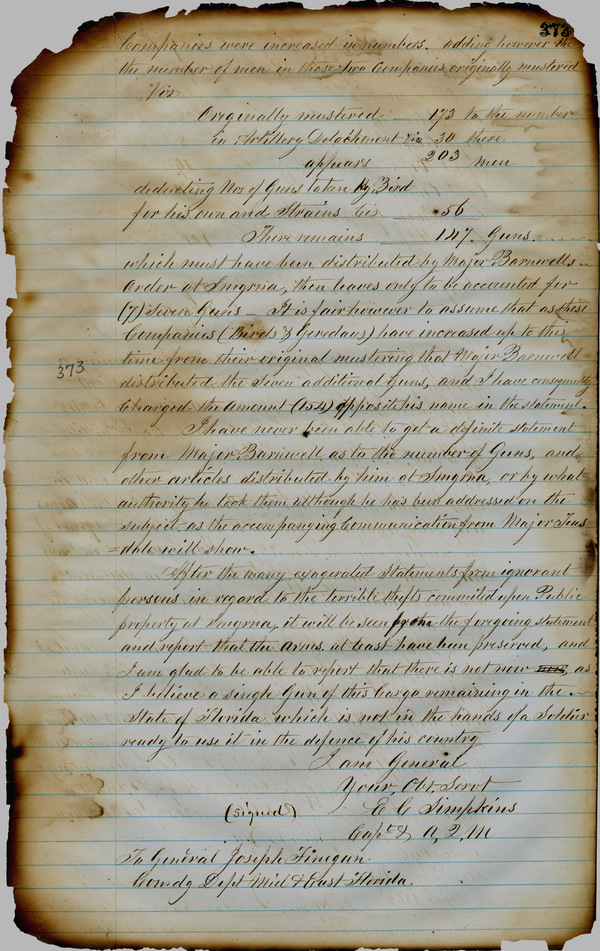 373
Companies were increased in numbers. adding however the
the number of men in those two Companies originally mustered
Viz
Originally mustered 173 to the number
in Artillery Detachment Viz 30 there
appears 203 men
deducting Nos of Guns taken By Bird
for his own and Strains Co's 56
There remains 147 Guns.
which must have been distributed by Major Barnwells
Order at Smyrna, then leaves only to be accounted for
(7) Seven Guns - It is fair however to assume that as these
Companies (Birds & Geredaus) have increased up to this
time from their original mustering that Major Barnwell
373
distributed the Seven additional Guns, and I have consequently
Charged the Amount (154) opposite his name in the statement.
I have never been able to get a definite statement
from Major Barnwell as to the number of Guns, and
other articles distributed by him at Smyrna, or by what
authority he took them although he has been addressed on the
subject as the accompanying Communication from Major Teas
=dale will show.
After the many exagerated statements from ignorant
persons in regard to the terrible thefts commited upon Public
property at Smyrna, it will be seen from the forgoing statement
and report that the Arms, at least have been preserved, and
I am glad to be able to report that there is not now as
I believe a single Gun of this Cargo remaining in the
State of Florida which is not in the hands of a Soldier
ready to use it in the defence of his country
I am General
Your Obt Servt
(signed) E C Simpkins
Capt & A, Q, M
To General Joseph Finegan
Comdg Dept Mid & East Florida.